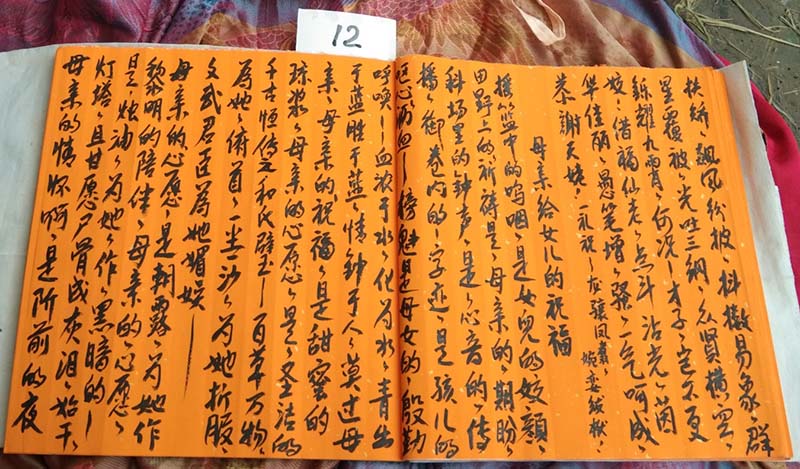 12
扶矫、飙风纷披、抖擞易象、群
星覆被、光吐三纲、贤横空、
铄耀九霄、何况、才子、岂不更
姣、借福仙老、点斗沾光、茵
华佳丽、愚笔增、一气呵成、
恭谢天姥、一礼祝、龙骧凤翥、婉娈
母亲给女儿的祝福
摇篮中的呜咽、是女兒的姣顔、
田野上的祈祷是、母亲的、期盼、
科场里的钟声、是、心音的、传
播、御卷内的、字迹、是孩儿的
呕心沥血—榜魁是母女的、殷勤
呼唤—血浓于水、化为水、青出
于蓝胜于蓝、情钟于人、莫过母
亲、母亲的祝福、是甜蜜的
琼浆、母亲的心愿、是、圣洁的
千古恒传之和氏璧玉—百草万物、
為她、俯首、一尘一沙、为她折服、
文武君臣為她媚娱——
母亲的心愿、是朝露、为她作
黎明的陪伴、母亲的心愿、
是烛油、为她、作、黑暗的—
灯塔、且甘愿尸骨成灰泪、始干、
母亲的情怀啊、是阶前的夜